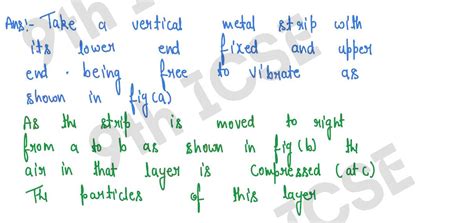 Ans:- Take a vertical metal strip with
its lower end fixed and upper
end . being free to vibrate as
shown in fig(a)
As the strip is moved to right
from a to b as shown in fig(b) the
air in that layer is compressed (at c)
The particles of this layer
9th ICSE
9th ICSE